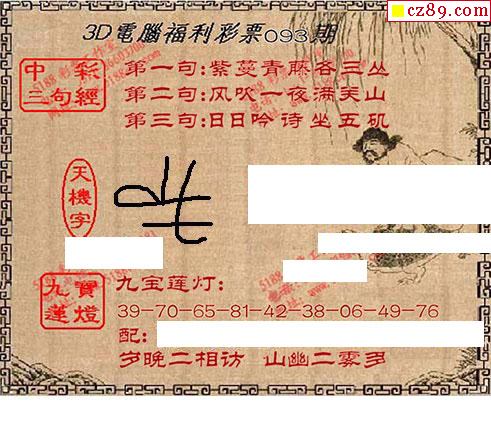 cz89.com
3D電腦福利彩票093期
中彩三句經
第一句:紫蔓青藤各三丛
第二句:风吹一夜满关山
第三句:日日吟诗坐五矶
天機字
九寶蓮燈
九宝莲灯:
39-70-65-81-42-38-06-49-76
配:
岁晚二相访 山幽二雾多